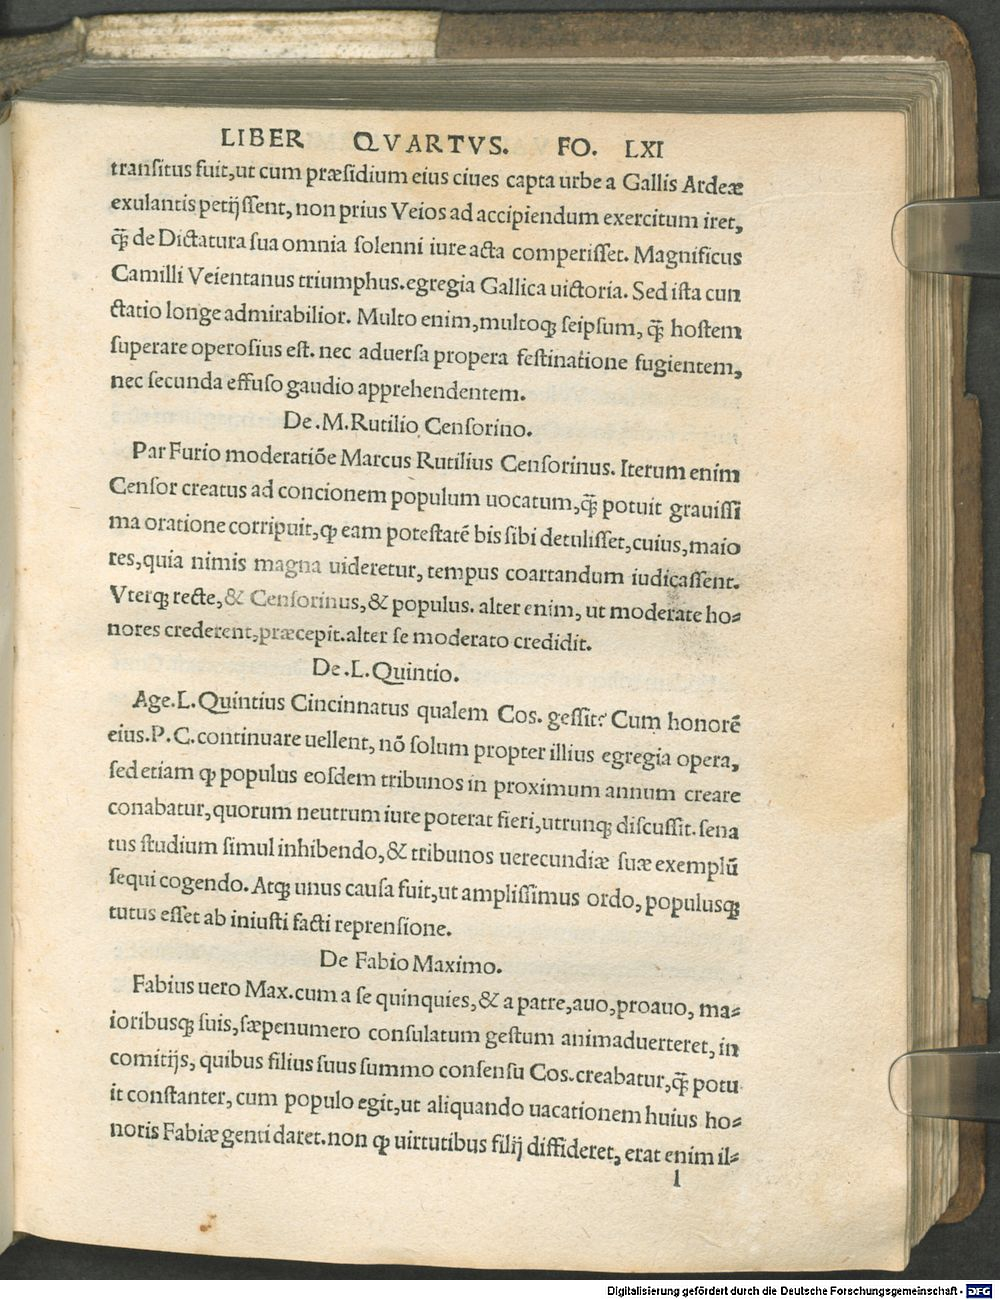 LIBER QVARTVS. FO. LXI
tranſitus fuit,ut cum præſidium eius ciues capta urbe a Gallis Ardeæ
exulantis petijſſent, non prius Veios ad accipiendum exercitum iret,
q̃ de Dictatura ſua omnia ſolenni iure acta comperiſſet. Magnificus
Camilli Veientanus triumphus.egregia Gallica uictoria. Sed iſta cun
ctatio longe admirabilior. Multo enim,multoq; ſeipſum, q̃ hoſtem
ſuperare operoſius eſt. nec aduerſa propera feſtinatione fugientem,
nec ſecunda effuſo gaudio apprehendentem.
De.M.Rutilio Cenſorino.
Par Furio moderatiõe Marcus Rutilius Cenſorinus. Iterum enim
Cenſor creatus ad concionem populum uocatum,q̃ potuit grauiſſi
ma oratione corripuit,ꝙ eam poteſtatē bis ſibi detuliſſet,cuius,maio
res,quia nimis magna uideretur, tempus coartandum iudicaſſent.
Vterq; recte,& Cenſorinus,& populus. alter enim, ut moderate ho⸗
nores crederent,præcepit.alter ſe moderato credidit.
De.L.Quintio.
Age.L.Quintius Cincinnatus qualem Cos. geſſit? Cum honorē
eius.P.C.continuare uellent, nō ſolum propter illius egregia opera,
ſed etiam ꝙ populus eoſdem tribunos in proximum annum creare
conabatur,quorum neutrum iure poterat fieri,utrunq; diſcuſſit.ſena
tus ſtudium ſimul inhibendo,& tribunos uerecundiæ ſuæ exemplū
ſequi cogendo. Atq; unus cauſa fuit,ut ampliſſimus ordo, populusq;
tutus eſſet ab iniuſti facti reprenſione.
De Fabio Maximo.
Fabius uero Max.cum a ſe quinquies,& a patre,auo,proauo, ma⸗
ioribusq; ſuis,ſæpenumero conſulatum geſtum animaduerteret, in
comitijs, quibus filius ſuus ſummo conſenſu Cos.creabatur,q̃ potu
it conſtanter, cum populo egit,ut aliquando uacationem huius ho⸗
noris Fabiæ genti daret.non ꝙ uirtutibus filij diffideret, erat enim il⸗
l
Digitalisierung gefördert durch die Deutsche Forschungsgemeinschaft - DFG